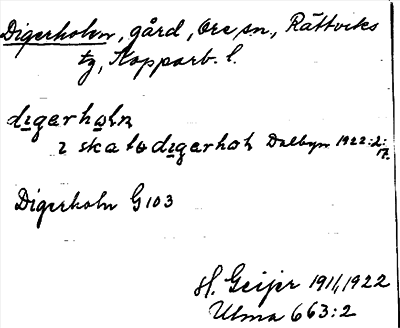 Digerholn, gård, Ore sn, Rättviks
tg, Kopparb. l.
digerholn
i ska to digerhoh Dalbyn 1922:2:
17.
Digerholn G103
H. Geijer 1911, 1922
Ulma 663:2